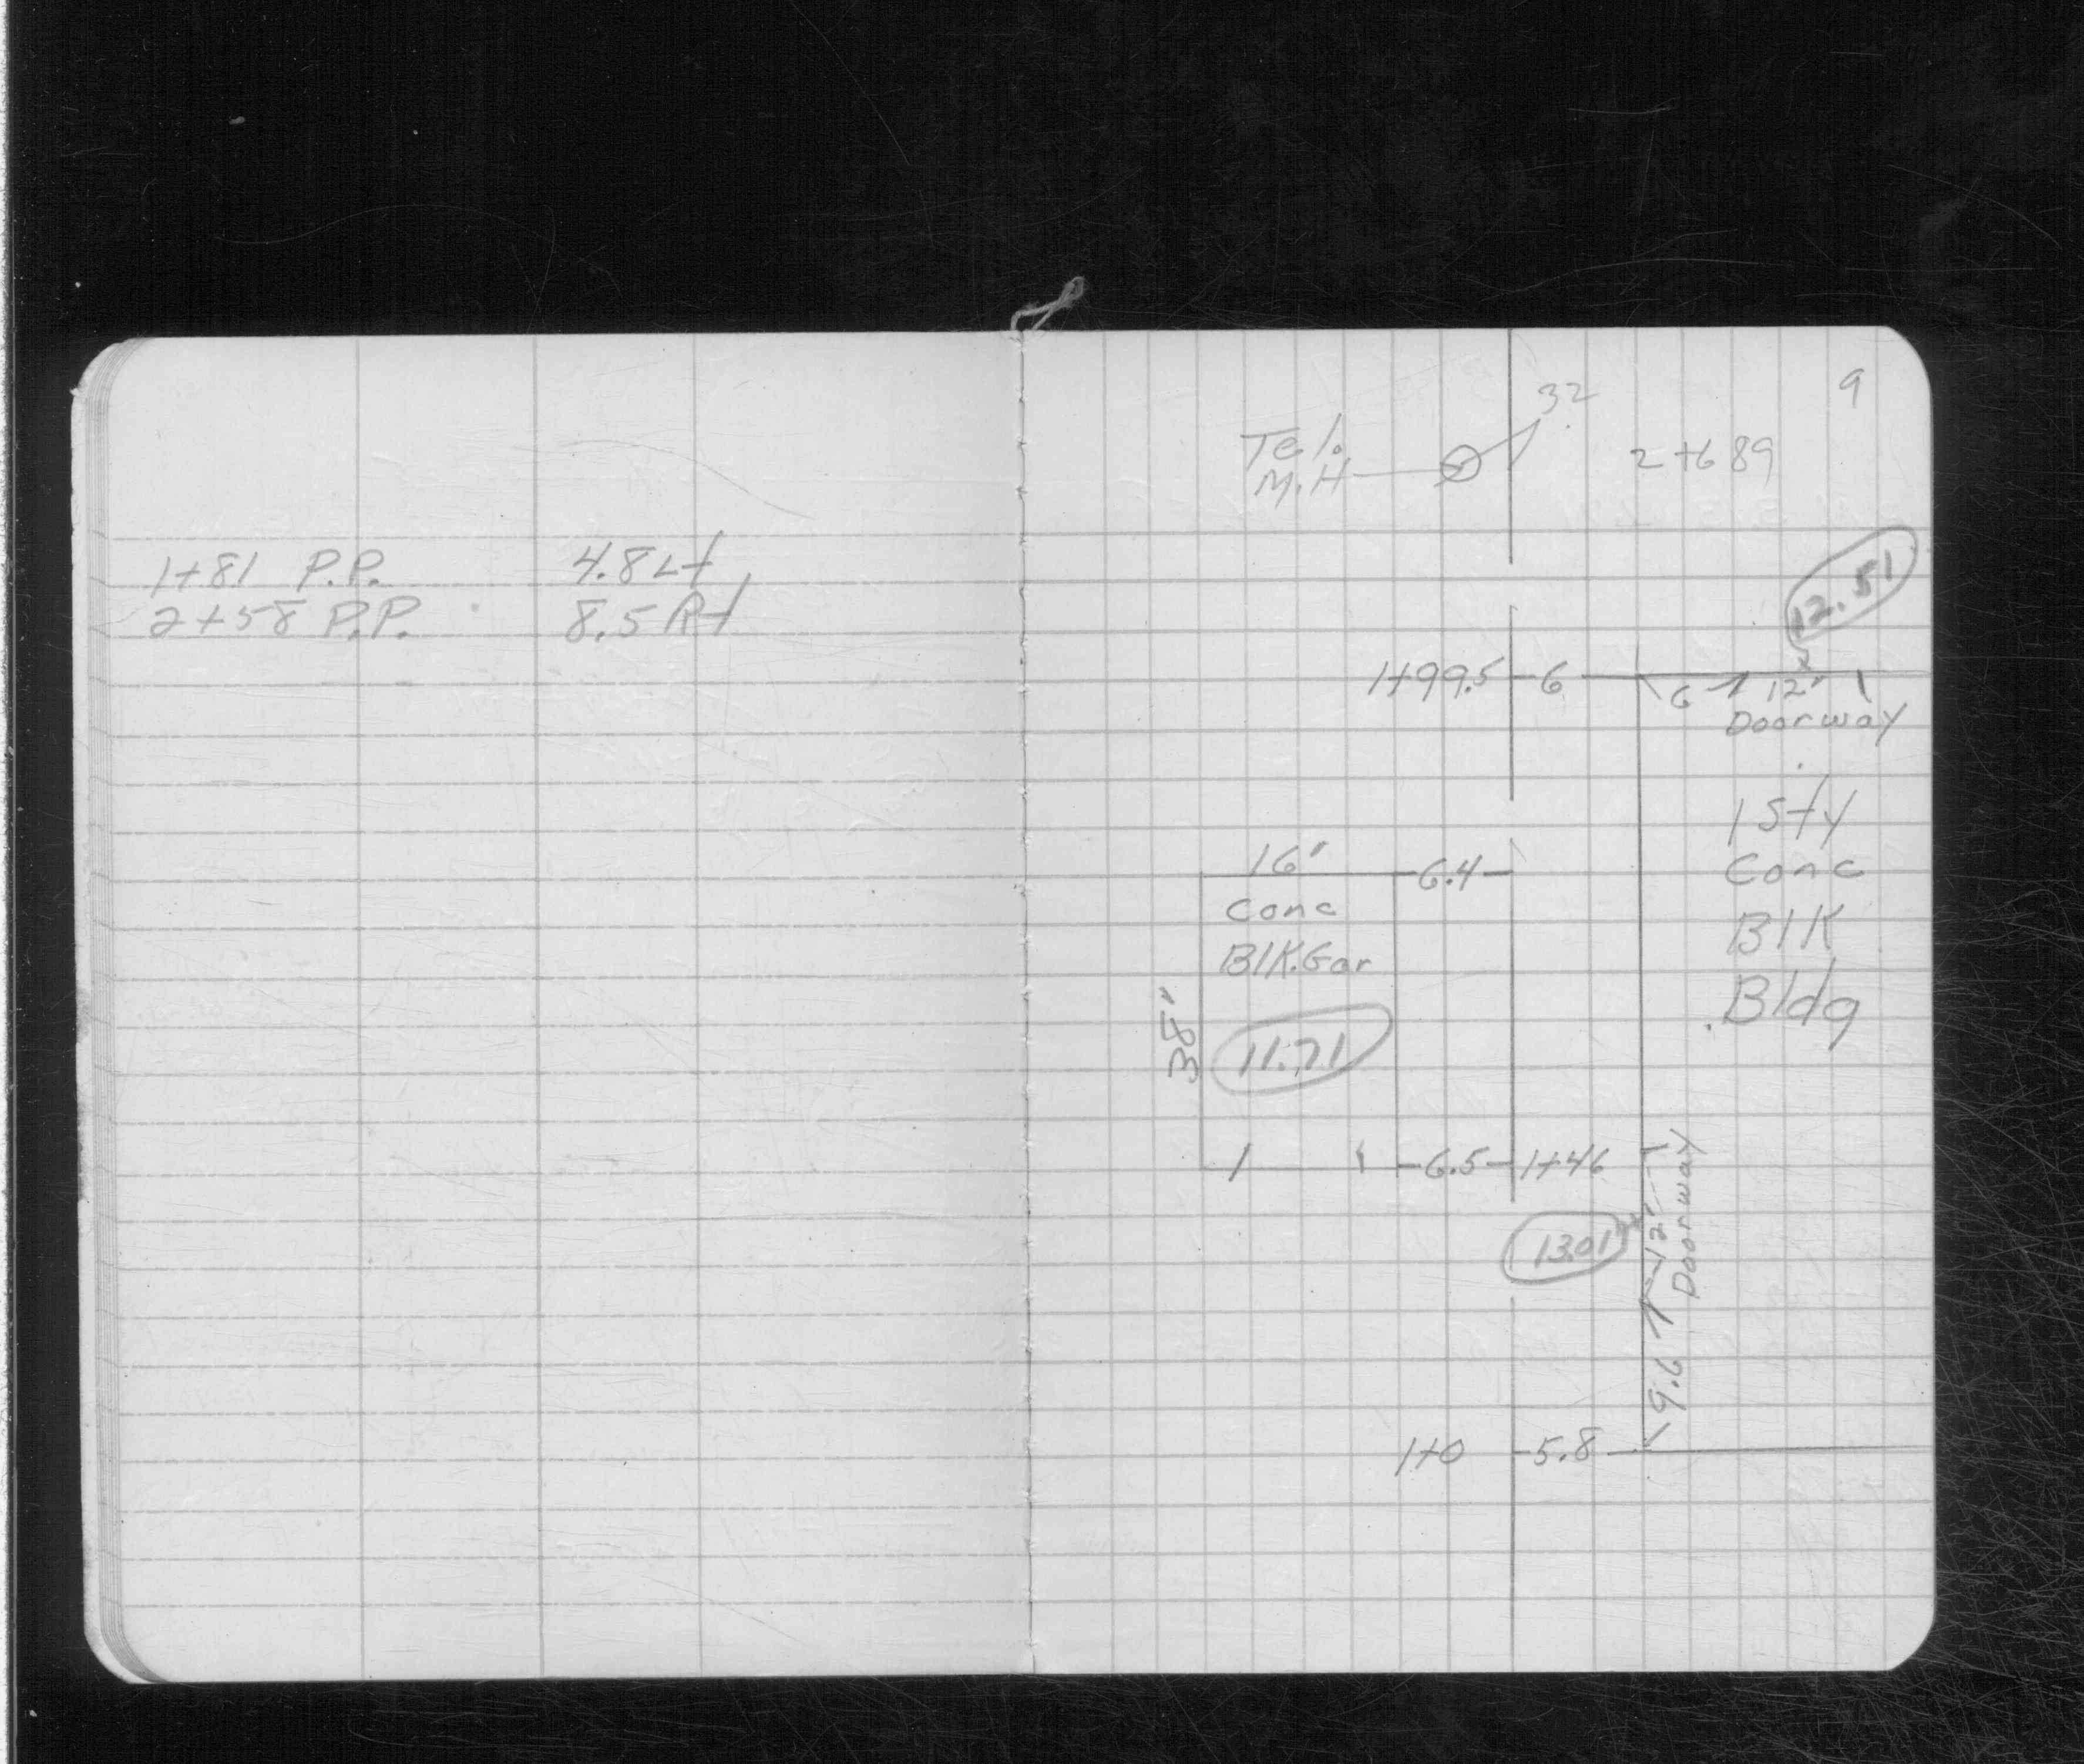 1+81 P.P. 4.8 Lt
2+58 P.P. 8.5 Rt
9
32
Tel.
M.H
2+689
12.51
1+99.5 6 6 12'
Doorway
1 Sty
Conc
Blk
Bldg
16' 6.4
Conc
Blk.Gar
38'
11.71
6.5 1+46
13.01
12'
Doorway
9.6
1+0 5.8